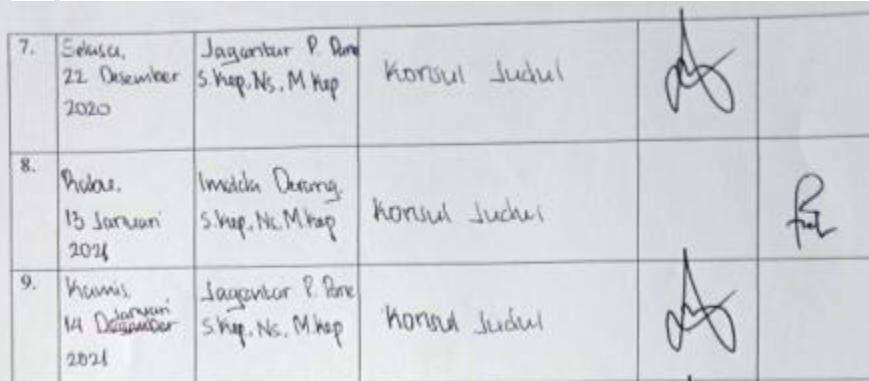 7. Selasa, 22 Desember 2020 Jagentar P. Pane S.Kep, Ns, M Kep Konsul Judul
8. Rabu, 13 Januari 2021 Imelda Derang. S.Kep, Ns, M Kep Konsul Judul
9. Kamis, 14 Januari 2021 Jagentar P. Pane S.Kep, Ns, M.Kep Konsul Judul